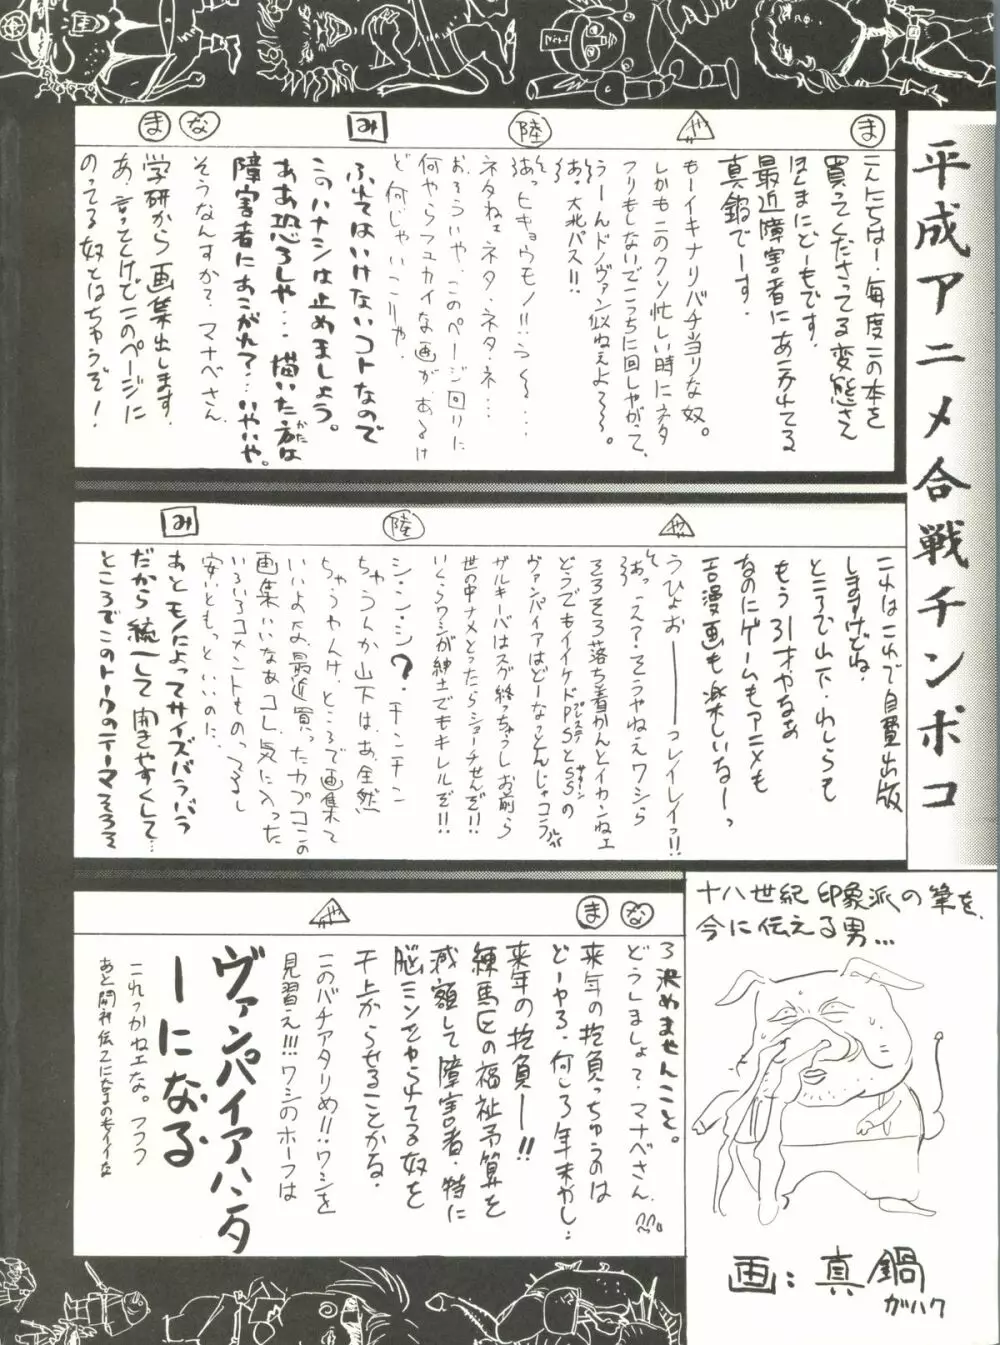 平成アニメ合戦チンポコ
ま
こんにちはー毎度この本を
買ってくださってる変態さん
ほんまにどーもです。
最近障害者にあこがれてる
真鍋でーす。
や
もーイキナリバチ当りな奴。
しかもこのクソ忙しい時にネタ
フリもしないでこっちに回しやがって、
うーんドノヴァン似ねぇよろ〜〜。
あっ大北パス!!
陸
あっヒキョウモノ!!う〜〜‥‥
ネタねェ ネタ・ネタ・ネ‥‥
おろういや、このページ回りに
何やらフユカイな画が、あるけ
ど何じゃいこりゃ。
み
ふれてはいけないコトなので
このハナシは止めましょう。
ああ恐ろしや‥‥描いた方は
かた
障害者にあこがれて?‥いやいや。
な
そうなんすか?マナベさん
ま
学研から画集出します。
あ、言っとけでこのページに
のってる奴とはちゃうぞ!
これはこれで自費出版
しますけどね。
ところで山下、わしらも
もう31才やなぁ
なのにゲームもアニメも
エロ漫画も楽しいなーっ
や
うひょお――――っレイレイっ!!
あっ え?そうやねえワシら
そろそろ落ち着かんとイカンねェ
どうでもイイケドPSとSSの
プレステ
サターン
ヴァンパイアはどーなっとんじゃコラ
ザルキーバはスグ終っちゃうしお前ら
世の中ナメとったらショーチせんぞ!!
いくらワシが紳士でもキレルぞ!!
陸
シ・ン・シ?・チンチン
ちゃうんか山下は、あ、全然
ちゃうやんけ、ところで画集て
いいよな、最近買ったカプコンの
画集いいなぁコレ、気に入った
いろいろコメントものってるし
安いともっといいのに、
み
あとモノによってサイズバラバラ
だから統一して開きやすくして‥
ところでこのトークのテーマそろそ
ろ決めませんこと。
な
どうしましょ?マナベさん
ま
来年の抱負っちゅうのは
どーやろ、何しろ年末やし‥
来年の抱負ー!!
練馬区の福祉予算を
減額して障害者・特に
脳ミソをやられてる奴を
干上からせることかな。
や
このバチアタリめ!!ワシを
見習え!!!ワシのホーフは
ヴァンパイアハンタ
ーになる
これっかねェな。フフフ
十八世紀 印象派の筆を、
今に伝える男...
画:真鍋
ガハク